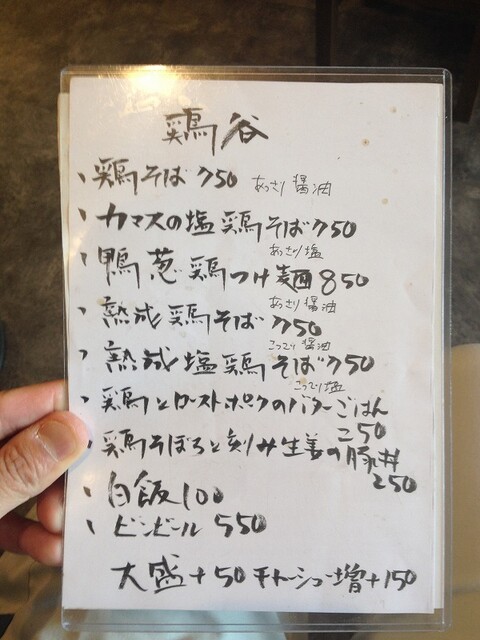 鶏谷
、鶏そば 750 あっさり醤油
、カマスの塩鶏そば 750
あっさり塩
鴨葱鶏つけ麺 850
あっさり醤油
、熟成鶏そば 750
こってり醤油
、熟成塩鶏そば 750
こってり塩
、鶏とローストポークのバターごはん
250
、鶏そぼろと刻み生姜の豚丼
250
、白飯 100
、ビンビール 550
大盛+50 チャーシュー増+150